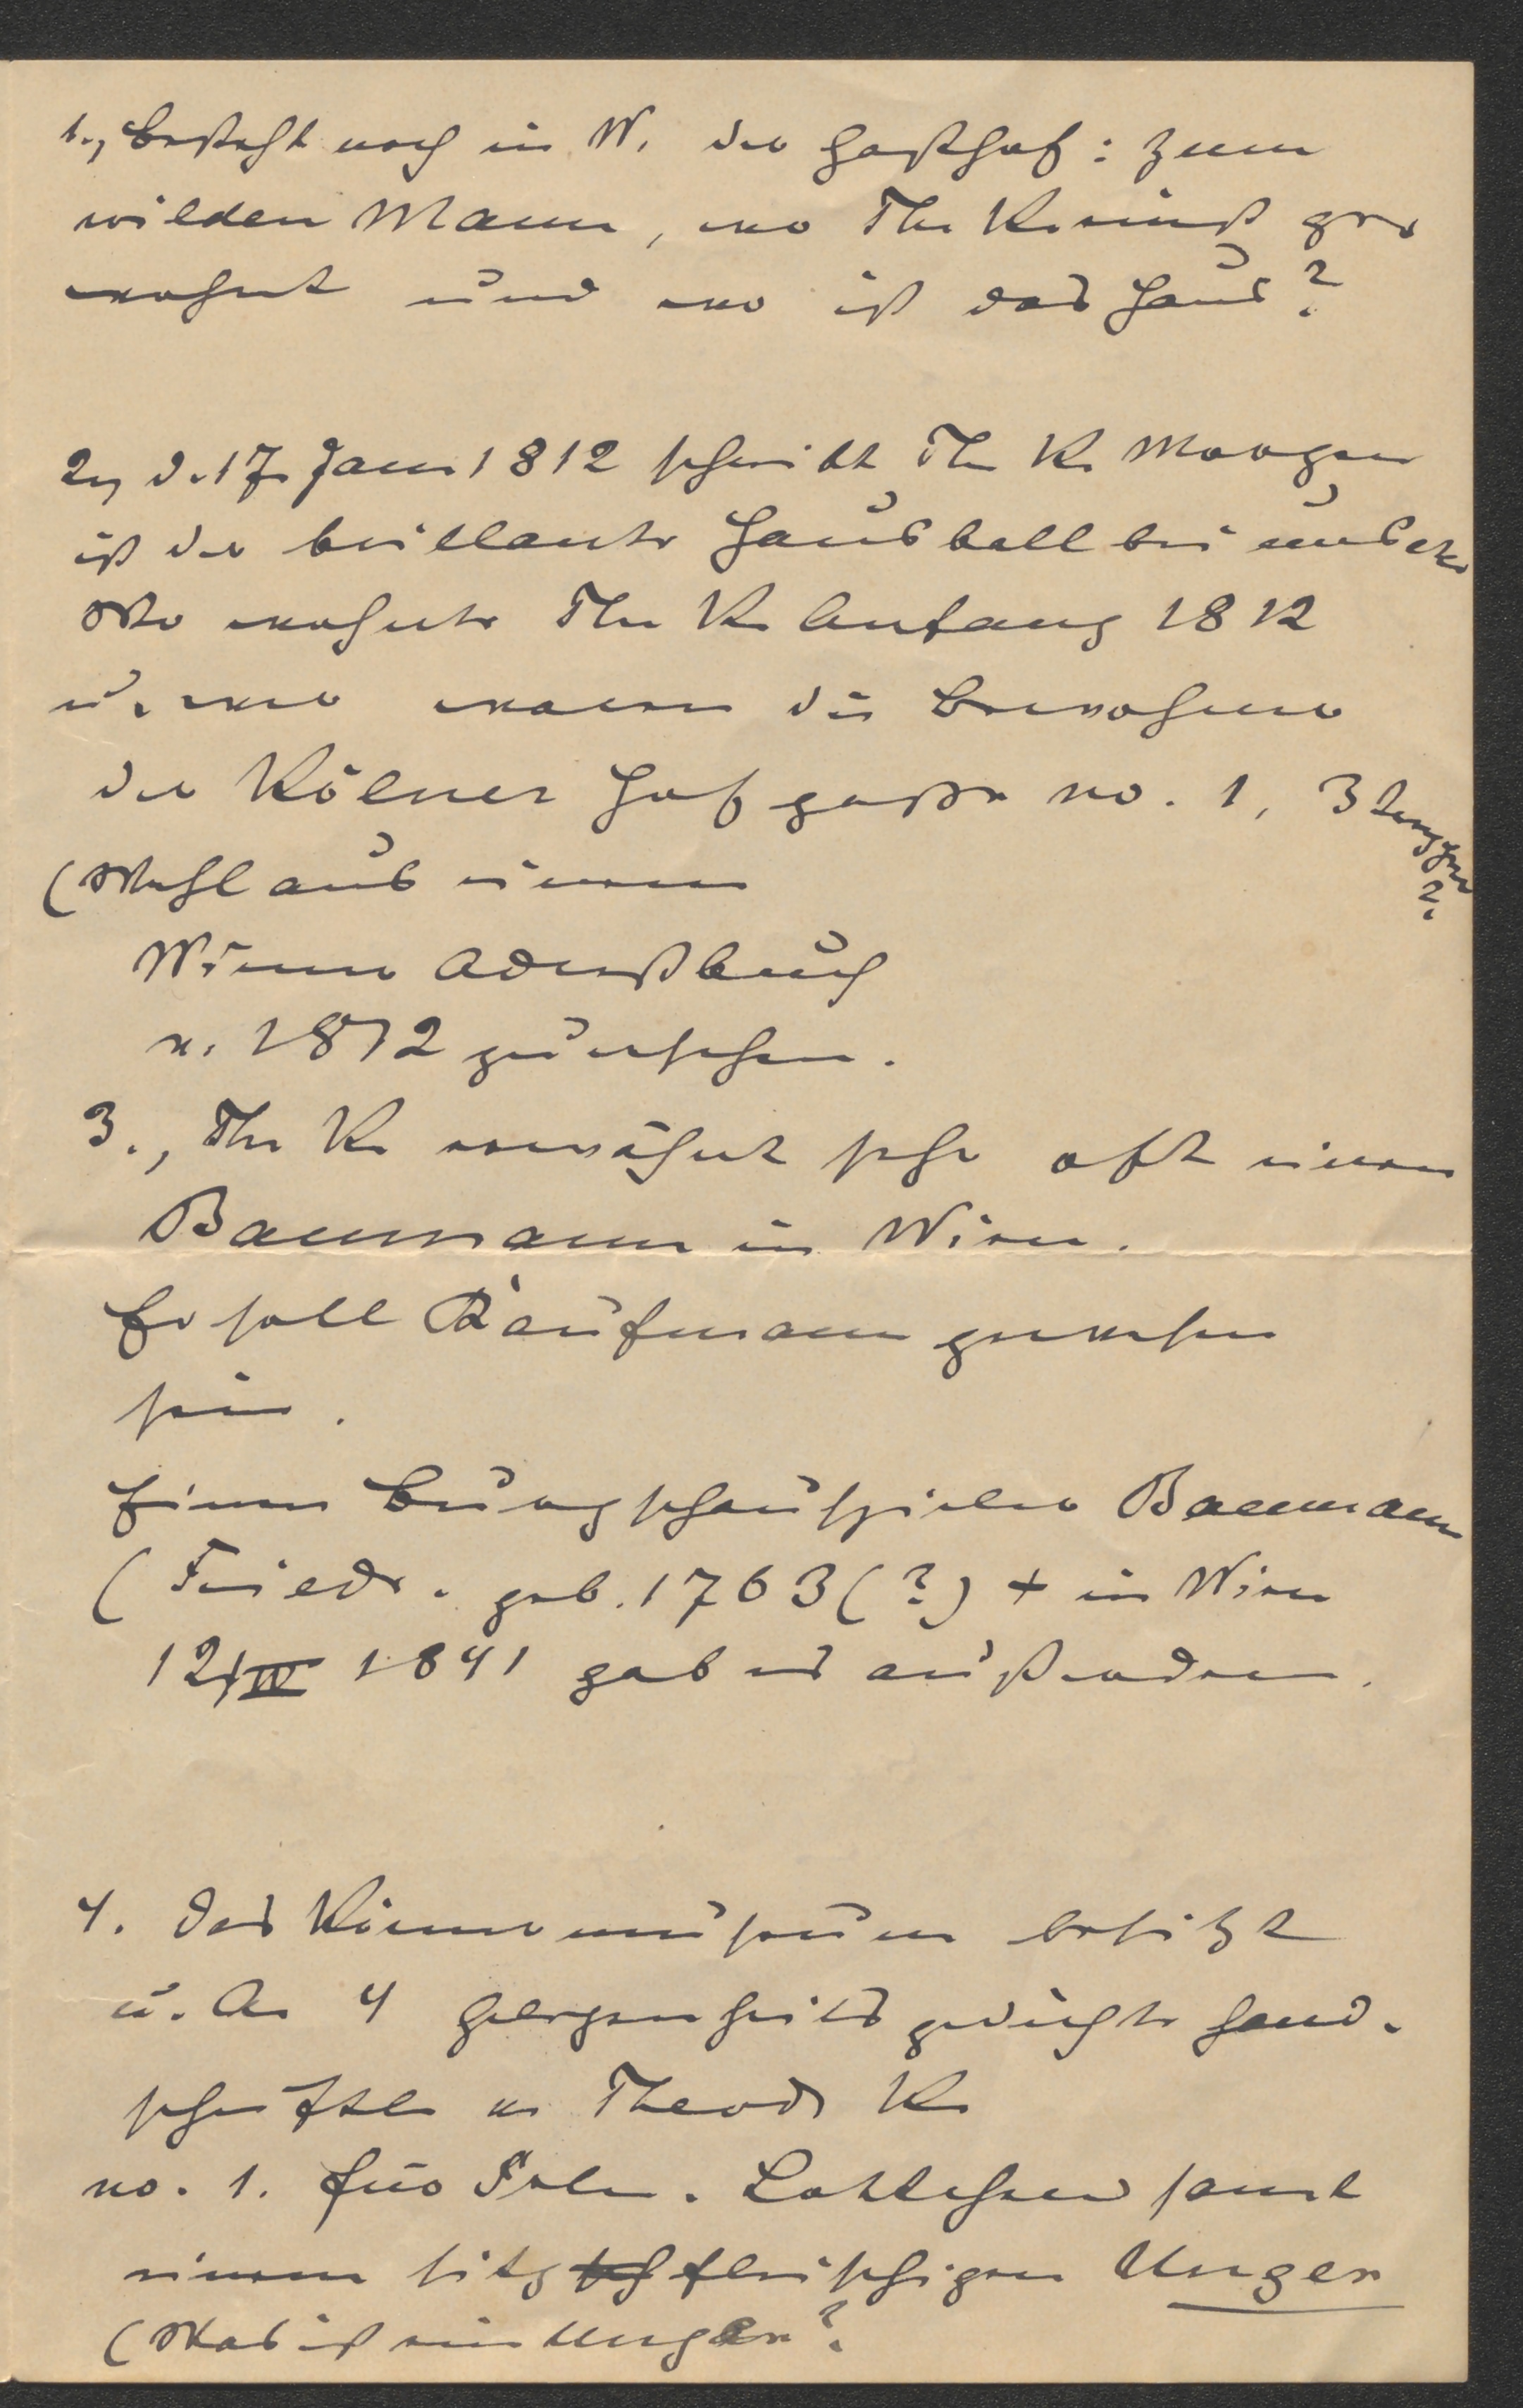 1., besteht noch in W. der Gasthof: zum
wilden Mann, wo Th. K. einst ge-
wohnt und wo ist das Haus?
2., d. 17. Jan. 1812 schreibt Th K. Morgen
ist der brillante Hausball bei uns etc
Wo wohnte Th. K. Anfang 1812
u. wer waren die Bewohner
der Kölner Hofgasse no. 1, 3
?
(Wohl aus einem
Wiener Adreßbuch
v. 1812 zu ersehen.
3., Th. K. erwähnt sehr oft einen
Baumann in Wien.
Er soll Kaufmann gewesen
sein.
Einen Burgschauspieler Baumann
(Friedr. geb. 1763 (?) + in Wien
12/IV 1841 gab es außerdem.
4. Das Körnermuseum besitzt
u. A. 4 Gelegenheitsgedichte hand-
schriftl. v. Theod. K.
no. 1. für Frln. Lottchen samt
einem sitzfleischigen Unger
(Was ist ein Unger?